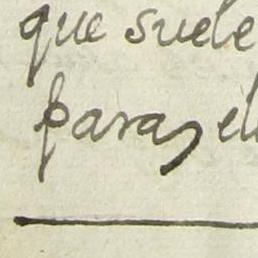 que suele
para el